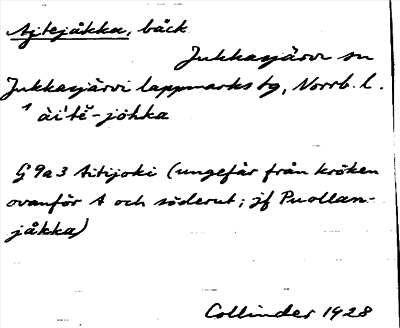 Ajtejåkka, bäck
Jukkasjärvi sn
Jukkasjärvi lappmarks tg, Norrb. l.
àiˈtĕ-johka
G 9a3 Aitijoki (ungefär från kröken
ovanför A och söderut; jf Puollan-
jåkka)
Collinder 1928